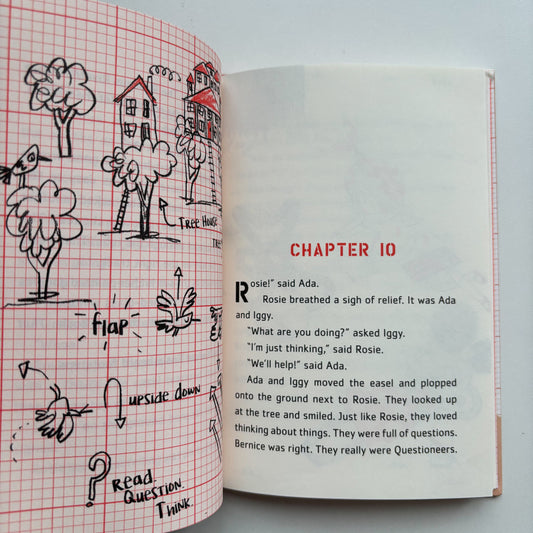 TREE HOUSE
TREE
flap
upside down
?
READ.
QUESTION.
THINK.
CHAPTER 10
Rosie!” said Ada.
Rosie breathed a sigh of relief. It was Ada
and Iggy.
“What are you doing?” asked Iggy.
“I’m just thinking,” said Rosie.
“We’ll help!” said Ada.
Ada and Iggy moved the easel and plopped
onto the ground next to Rosie. They looked up
at the tree and smiled. Just like Rosie, they loved
thinking about things. They were full of questions.
Bernice was right. They really were Questioneers.